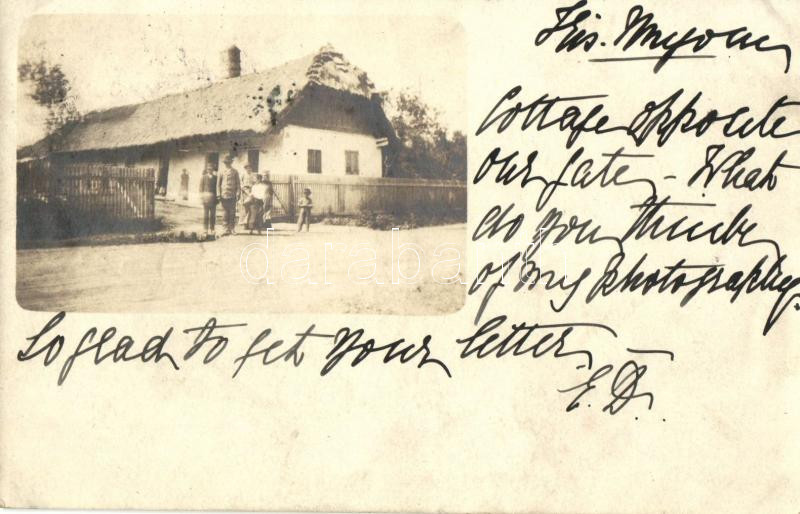 Kis. Unyom
Cottage opposite
our gate - What
do you think
of my photography.
So glad to get your letter
E. D.
darabanth